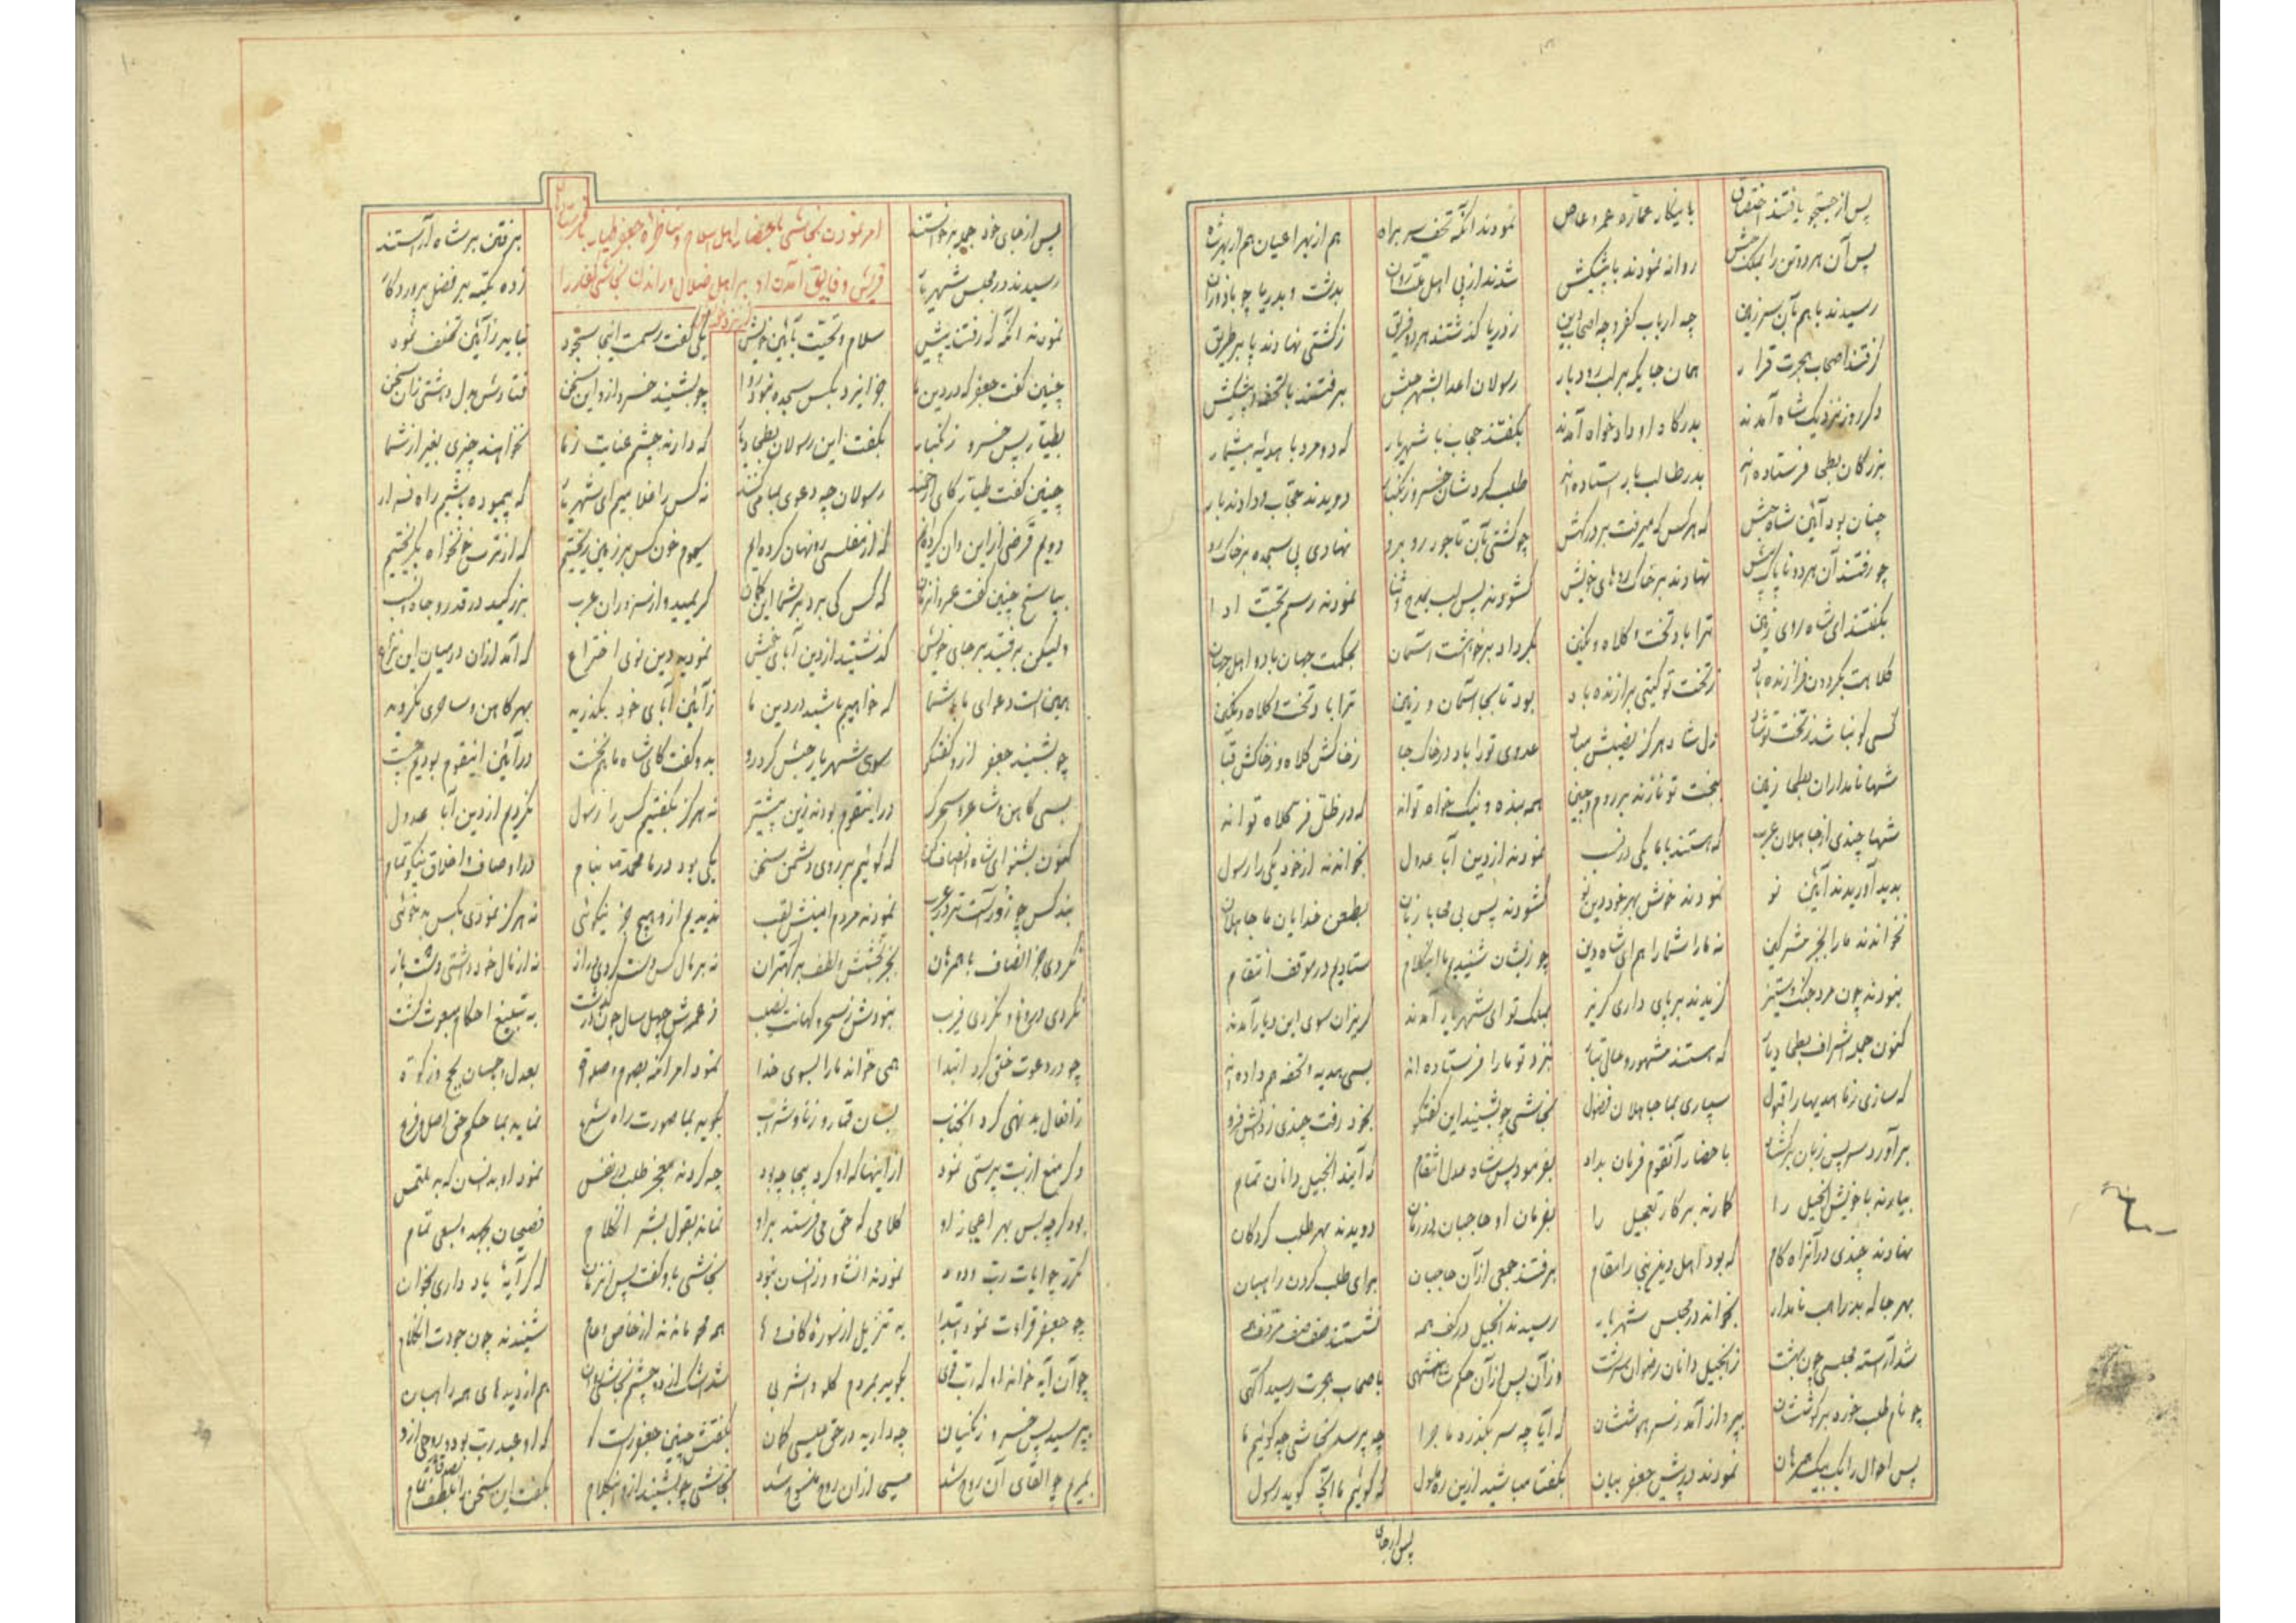 پس از جستجو یافتند اختصاص با ینکار عماره عمرو عاص نمودند آنگه تحف سر براه هم از بهر اعیان هم از بهر شاه
پس آن هر دو تن را بملک حبش روانه نمودند با پیشکش شدند از پی اهل بدشت و بدریا چو باد وزان
رسیدند با هم بآن سرزمین چه ارباب کفر و چه اصحاب دین ز دریا گذشتند هر دو فریق ز کشتی نهادند پا بر طریق
گرفتند اصحاب هجرت قرار همان جایگه بر لب رودبار رسولان اعدا بشهر حبش برفتند با تحفه و پیشکش
دگر روز نزدیک شاه آمدند بدرگاه او دادخواه آمدند بگفتند حجاب با شهریار که دو مرد با هدیه بیشمار
بزرگان بطحی فرستاده اند بدر طالب بار استاده اند طلب کردشان خسرو زنگبار دویدند حجاب و دادند بار
چنان بود آئین شاه حبش که هر کس که میرفت بر درگهش چو گشتی بآن تاجور روبرو نهادی پی سجده بر خاک رو
چو رفتند آن هر دو ناپاک کیش نهادند بر خاک روهای خویش گشودند پس لب بمدح و ثنا نمودند رسم تحیت ادا
بگفتند ای شاه روی زمین ترا باد تخت و کلاه و نگین بحکمت جهان باد و اهل جهان
کلاهت بگردون فرازنده باد ز تخت تو گیتی برازنده باد بود تا بجا آسمان و زمین ترا باد تخت و کلاه و نگین
کسی کو نباشد ز تخت تو شاد دل شاد هرگز نصیبش مباد عدوی تو را باد در خاک جا ز خاکش کلاه و ز خاکش قبا
شها نامداران بطحی زمین ببخت تو نازند بر روم و چین همه بنده و نیک خواه تو اند که در ظل فر کلاه تو اند
شها چندی از جاهلان عرب که هستند با ما یکی در نسب نمودند از دین آبا عدول بخواندند از خود یکی را رسول
بدید آوریدند آئین نو نمودند خوش بهر خود دین نو گشودند پس بی محابا زبان بطعن خدایان ما جاهلان
نخواندند ما را بجز مشرکین نه ما را شما را هم ای شاه دین چو زیشان شنیدیم ما اینکلام ستادیم در موقف انتقام
نبودند چون مرد جنگ و ستیز گزیدند بر پای داری گریز بملک تو ای شهریار آمدند گریزان سوی این دیار آمدند
کنون جمله اشراف بطحی دیار که هستند مشهور و عالی تبار بنزد تو ما را فرستاده اند بسی هدیه و تحفه هم داده اند
که سازی ز ما هدیها را قبول سپاری بما جاهلان فضول نجاشی چو بشنید این گفتگو بخود رفت چندی ز دانش فرو
برآورد سر پس زبان برگشاد باحضار آنقوم فرمان بداد بفرمود پس شاه عدل انتقام که آیند انجیل دانان تمام
بیارند با خویش انجیل را کارند بر کار تعجیل را بفرمان او حاجبان در زمان دویدند بهر طلب کردگان
نهادند چندی در آنراه گام که بود اهل دین نبی را مقام برفتند جمعی از آن حاجبان برای طلب کردن راهبان
بهر جا که بد راهب نامدار بخواند در مجلس شهریار رسیدند انجیل در کف همه نشستند صف صف
شد آراسته مجلسی چون بهشت ز انجیل دانان رضوان سرشت وز آن پس از آن حکم شاهنشهی باصحاب هجرت رسید آگهی
چو نام طلب خورد بر گوششان بپرواز آمد ز سر هوششان که آیا چه سر بگذرد ماجرا چه پرسد نجاشی چه گوئیم ما
پس احوال را یک بیک همرهان نمودند در پیش جعفر بیان بگفتا مباشید ازین ره ملول که گوئیم ما آنچه گوید رسول
پس از جای
پس از جای خود جمله برخاستند برفتن بر شاه آراستند
امر نمودن نجاشی باحضار اهل اسلام و مناظره جعفر طیار با فرستادگان
قریش و فایق آمدن او بر اهل ضلال و راندن نجاشی غدر را
رسیدند در مجلس شهریار زده تکیه بر فضل پروردگار
نمودند آنگه که رفتند پیش سلام و تحیت بآئین خویش یکی گفت رسمست اینجا سجود نباید ز آئین تخلف نمود
چنین گفت جعفر که در دین ما جز ایزد بکس سجده نبود روا چو بشنید خسرو ازو این سخن
بطیار پس خسرو زنگبار بگفت این رسولان بطحی دیار که دارند چشم عنایت ز ما نخواهند چیزی بغیر از شما
چنین گفت طیار کای ارجمند رسولان چه دعوی بما میکنند نه کس را غلامیم ای شهریار که پیموده باشیم راه فرار
دویم قرضی از این و آن کرده ایم که از مفلسی رو نهان کرده ایم سیوم خون کس بر زمین ریختیم که از ترس خونخواه بگریختیم
بپاسخ چنین گفت عمرو آنزمان که کس کی برد بر شما این گمان کریمید و از سروران عرب بزرگید در قدر و جاه و نسب
ولیکن برفتید بر جای خویش گذشتید از دین آبای خویش نمودید دین نوی اختراع که آمد از آن در میان این نزاع
همین است دعوای ما با شما که خواهیم باشید در دین ما ز آئین آبای خود بگذرید بهر کاهن و ساحری نگروید
چو بشنید جعفر ازو گفتگو سوی شهریار حبش کرد رو بدو گفت کای شاه ما هم نخست در آئین اینقوم بودیم چست
بسی کاهن و شاعر و سحرگر در اینقوم بودند زین پیشتر نه هرگز بگفتیم کس را رسول نکردیم از دین آبا عدول
کنون بشنو ای شاه انصاف کن که گوئیم بر روی دشمن سخن یکی بود در ما محمد بنام در اوصاف و اخلاق نیکو تمام
نمودند مردم امینش لقب ندیدیم ازو هیچ جز نیکوئی نه هرگز نمودی بکس بدخوئی
نکردی جز انصاف با همرهان بجز بخشش و لطف بر کهتران نه بر مال کس دست کردی دراز نه از مال خود داشتی دست باز
نکردی دروغ و نکردی فریب نبودش ز سحر و کهانت نصیب ز عمرش چهل سال چون در گذشت به تبلیغ احکام مبعوث گشت
چو در دعوت خلق کرد ابتدا همی خواند ما را بسوی خدا نمود امر آنگه بصوم و صلوة بعدل و باحسان بحج و زکوة
ز افعال بد نهی کرد آنجناب بسان قمار و زنا و شراب بگوید بما صورت راه شرع نماید بما حکم حق اصل و فرع
دگر منع از بت پرستی نمود از اینها که او کرد بیجا چه بود چه کردند معجز طلب نمود او بدانسان که بد ملتمس
بود گرچه بس بهر اعجاز او کلامی که حق می فرستد براو نماند بقول بشر آنکلام فصیحان بجهد و بسعی تمام
نمودند انشا و زانسان نبود نجاشی باو گفت پس آنزمان که گر آیهٔ یاد داری بخوان
چو جعفر قراءت نمود ابتدا به تنزیل از سورهٔ کاف و ها همه محو ماندند از خاص و عام شنیدند چون جودت آنکلام
چو آن آیه خواند او که بگوید بمریم کلی و اشربی شد اشک از دو چشم نجاشی روان هم از دیدهای همه راهبان
بپرسید پس خسرو زنگیان چه دارید در حق عیسی گمان بگفتش چنین جعفر که او عبد رب بود و روحی ازو
بمریم چو القای آن روح شد مسیحی از آن روح شد نجاشی چو بشنید ازو اینکلام بگفت این سخن